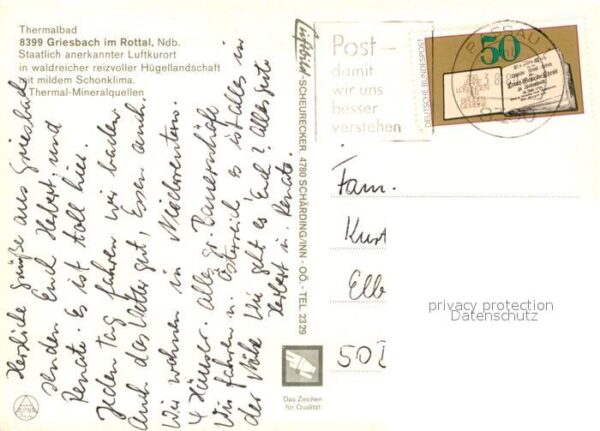 Thermalbad
8399 Griesbach im Rottal, Ndb.
Staatlich anerkannter Luftkurort
in waldreicher reizvoller Hügellandschaft
mit mildem Schonklima.
Thermal-Mineralquellen
Herzliche Grüße aus Griesbach
senden Euch Herbert, und
Renate. Es ist toll hier.
Jeden Tag fahren wir baden.
Auch das Wetter gut, Essen auch.
Wir wohnen in Niedreuten.
4 Häuser. Alles gr. Bauernhöfe
Wir fahren n. Österreich. Es ist alles in
der Nähe. Wie geht es Euch? Alles Gute
Herbert u. Renate.
Luftbild-SCHEURECKER, 4780 SCHÄRDING/INN - OÖ. - TEL. 2329
Post-
damit
wir uns
besser
verstehen
PASSAU
50
DEUTSCHE BUNDESPOST
LOSUNGEN
DER
BRÜDER
GEMEINE
Fam.
Kurt
Elb
50
privacy protection
Datenschutz
Das Zeichen
für Qualität